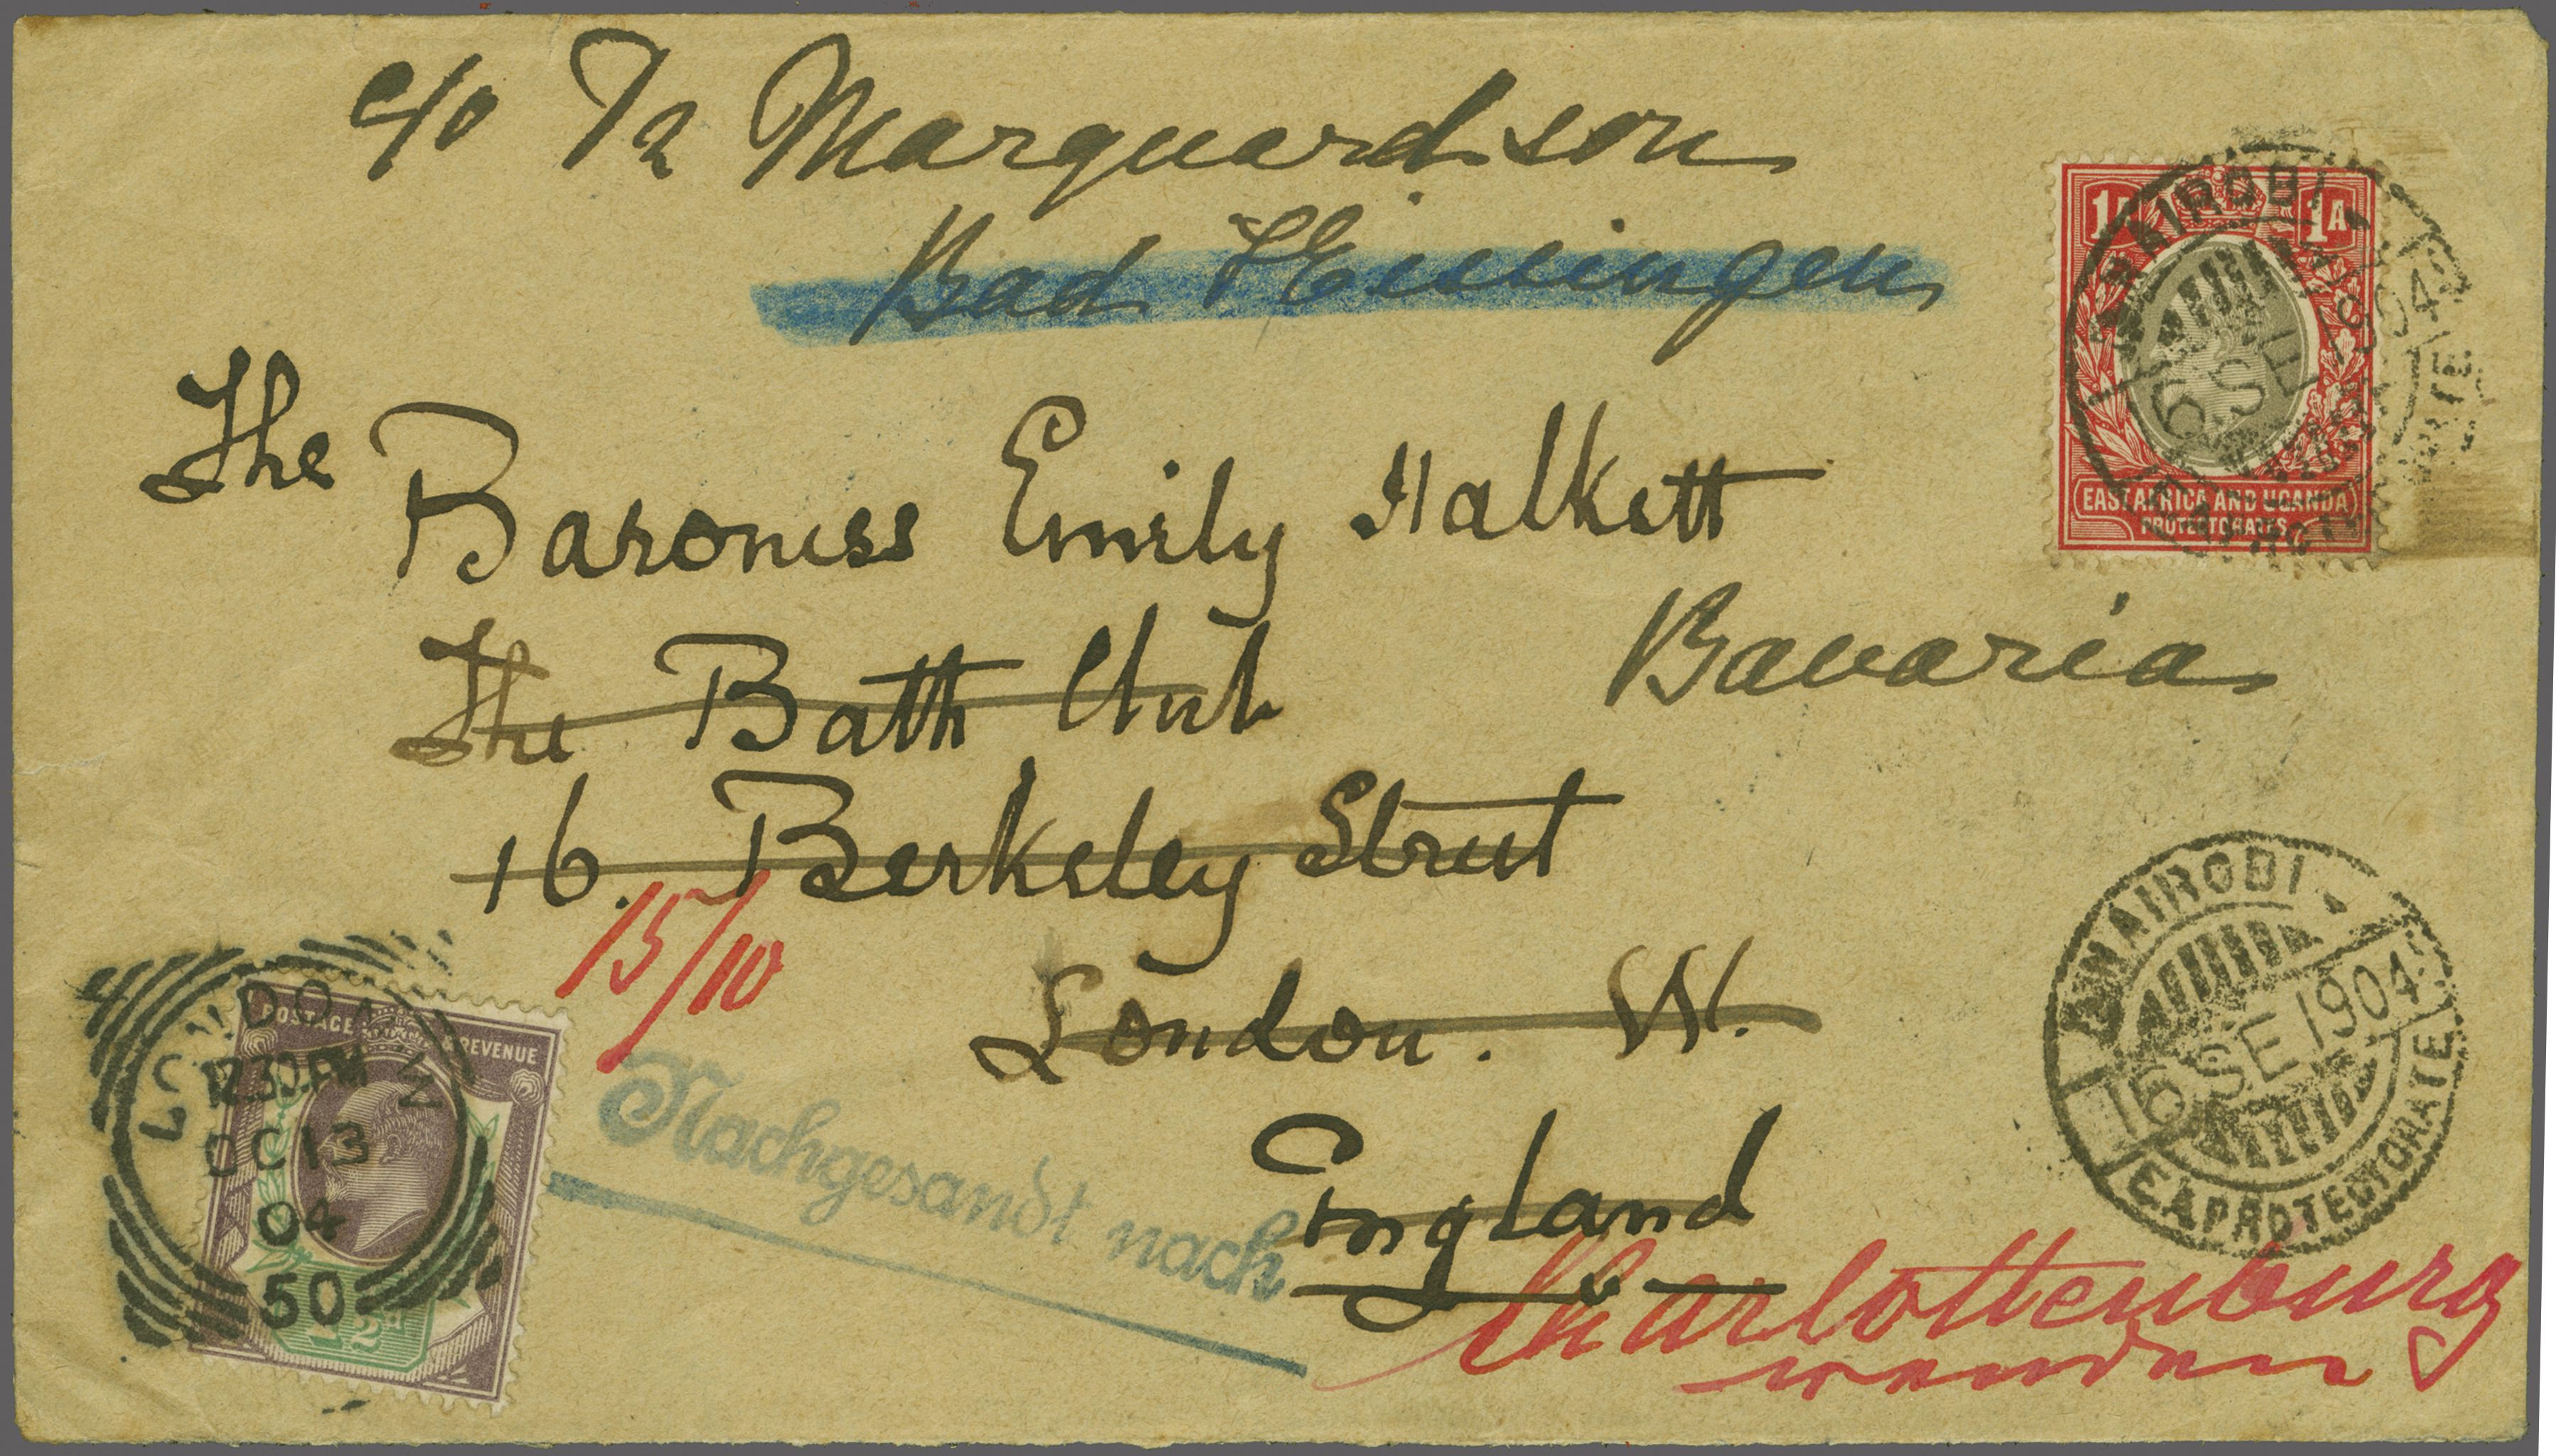 c/o Marquardson
Bad Kissingen
1A 1A
NAIROBI
EAST AFRICA AND UGANDA
PROTECTORATES
The
Baroness Emily Halkett
The Bath Club
Bavaria
16. Berkeley Street
15/10
London. W.
England
NAIROBI
16 SE 1904
E.A. PROTECTORATE
POSTAGE & REVENUE
LONDON W
12.30 PM
OC 13
04
50
Nachgesandt nach
Charlottenburg
wenden